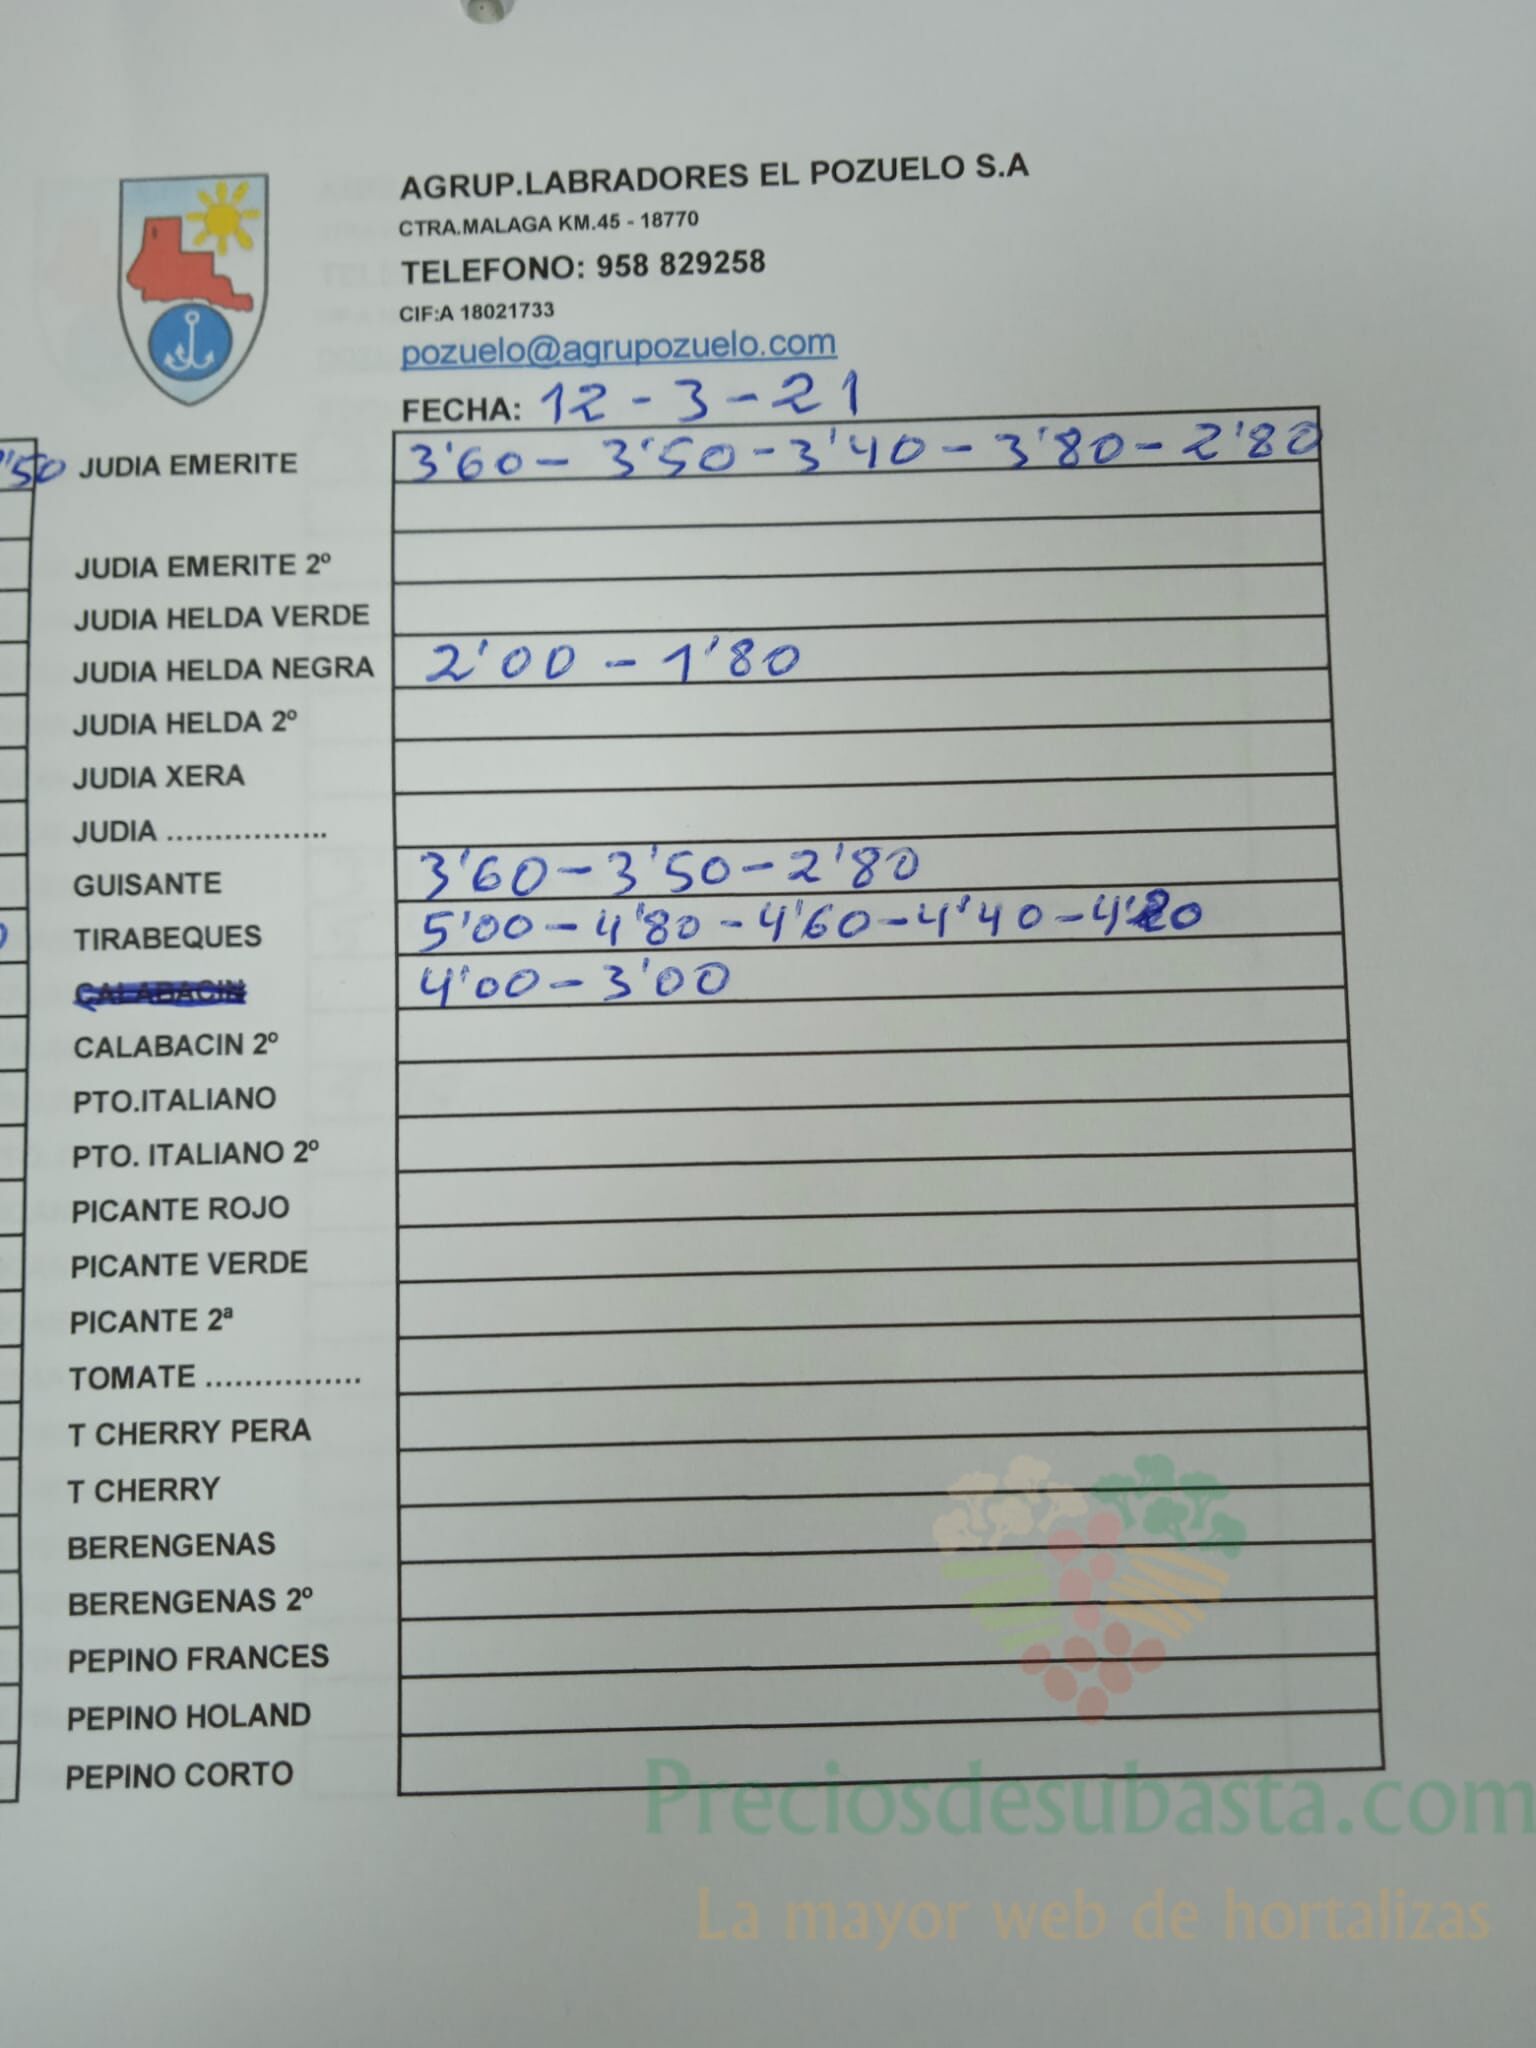 AGRUP.LABRADORES EL POZUELO S.A
CTRA.MALAGA KM.45 - 18770
TELEFONO: 958 829258
CIF:A 18021733
pozuelo@agrupozuelo.com
FECHA: 12-3-21
'50 JUDIA EMERITE 3'60-3'50-3'40-3'80-2'80
JUDIA EMERITE 2º
JUDIA HELDA VERDE
JUDIA HELDA NEGRA 2'00-1'80
JUDIA HELDA 2º
JUDIA XERA
JUDIA .................
GUISANTE 3'60-3'50-2'80
TIRABEQUES 5'00-4'80-4'60-4'40-4'20
CALABACIN 4'00-3'00
CALABACIN 2º
PTO.ITALIANO
PTO. ITALIANO 2º
PICANTE ROJO
PICANTE VERDE
PICANTE 2ª
TOMATE ................
T CHERRY PERA
T CHERRY
BERENGENAS
BERENGENAS 2º
PEPINO FRANCES
PEPINO HOLAND
PEPINO CORTO
Preciosdesubasta.com
La mayor web de hortalizas